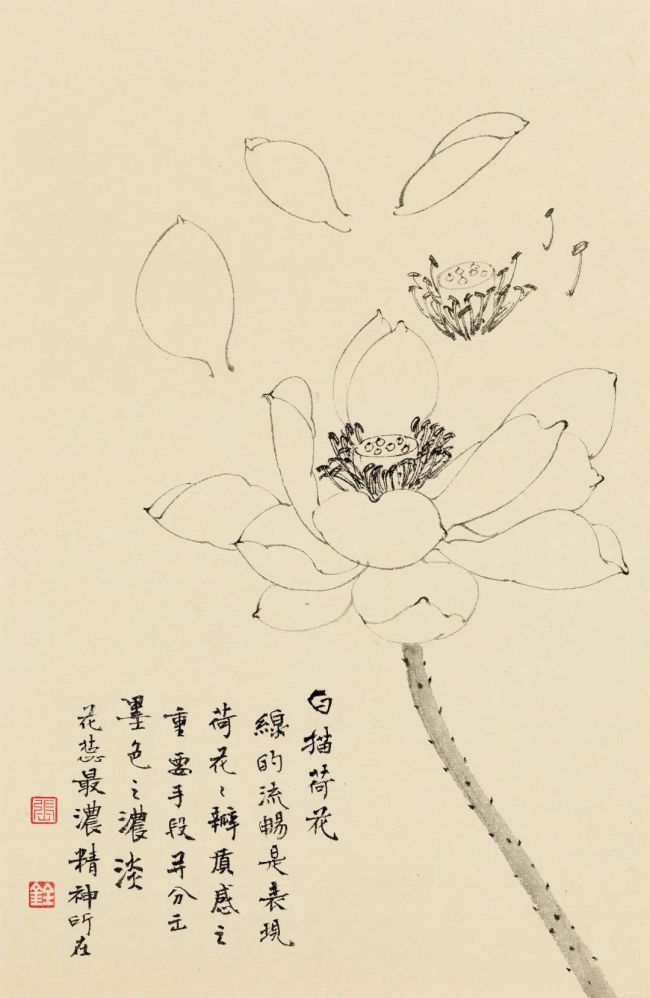 白描荷花
線的流暢是表現
荷花々瓣質感之
重要手段并分出
墨色之濃淡
花蕊最濃精神所在
張
銓